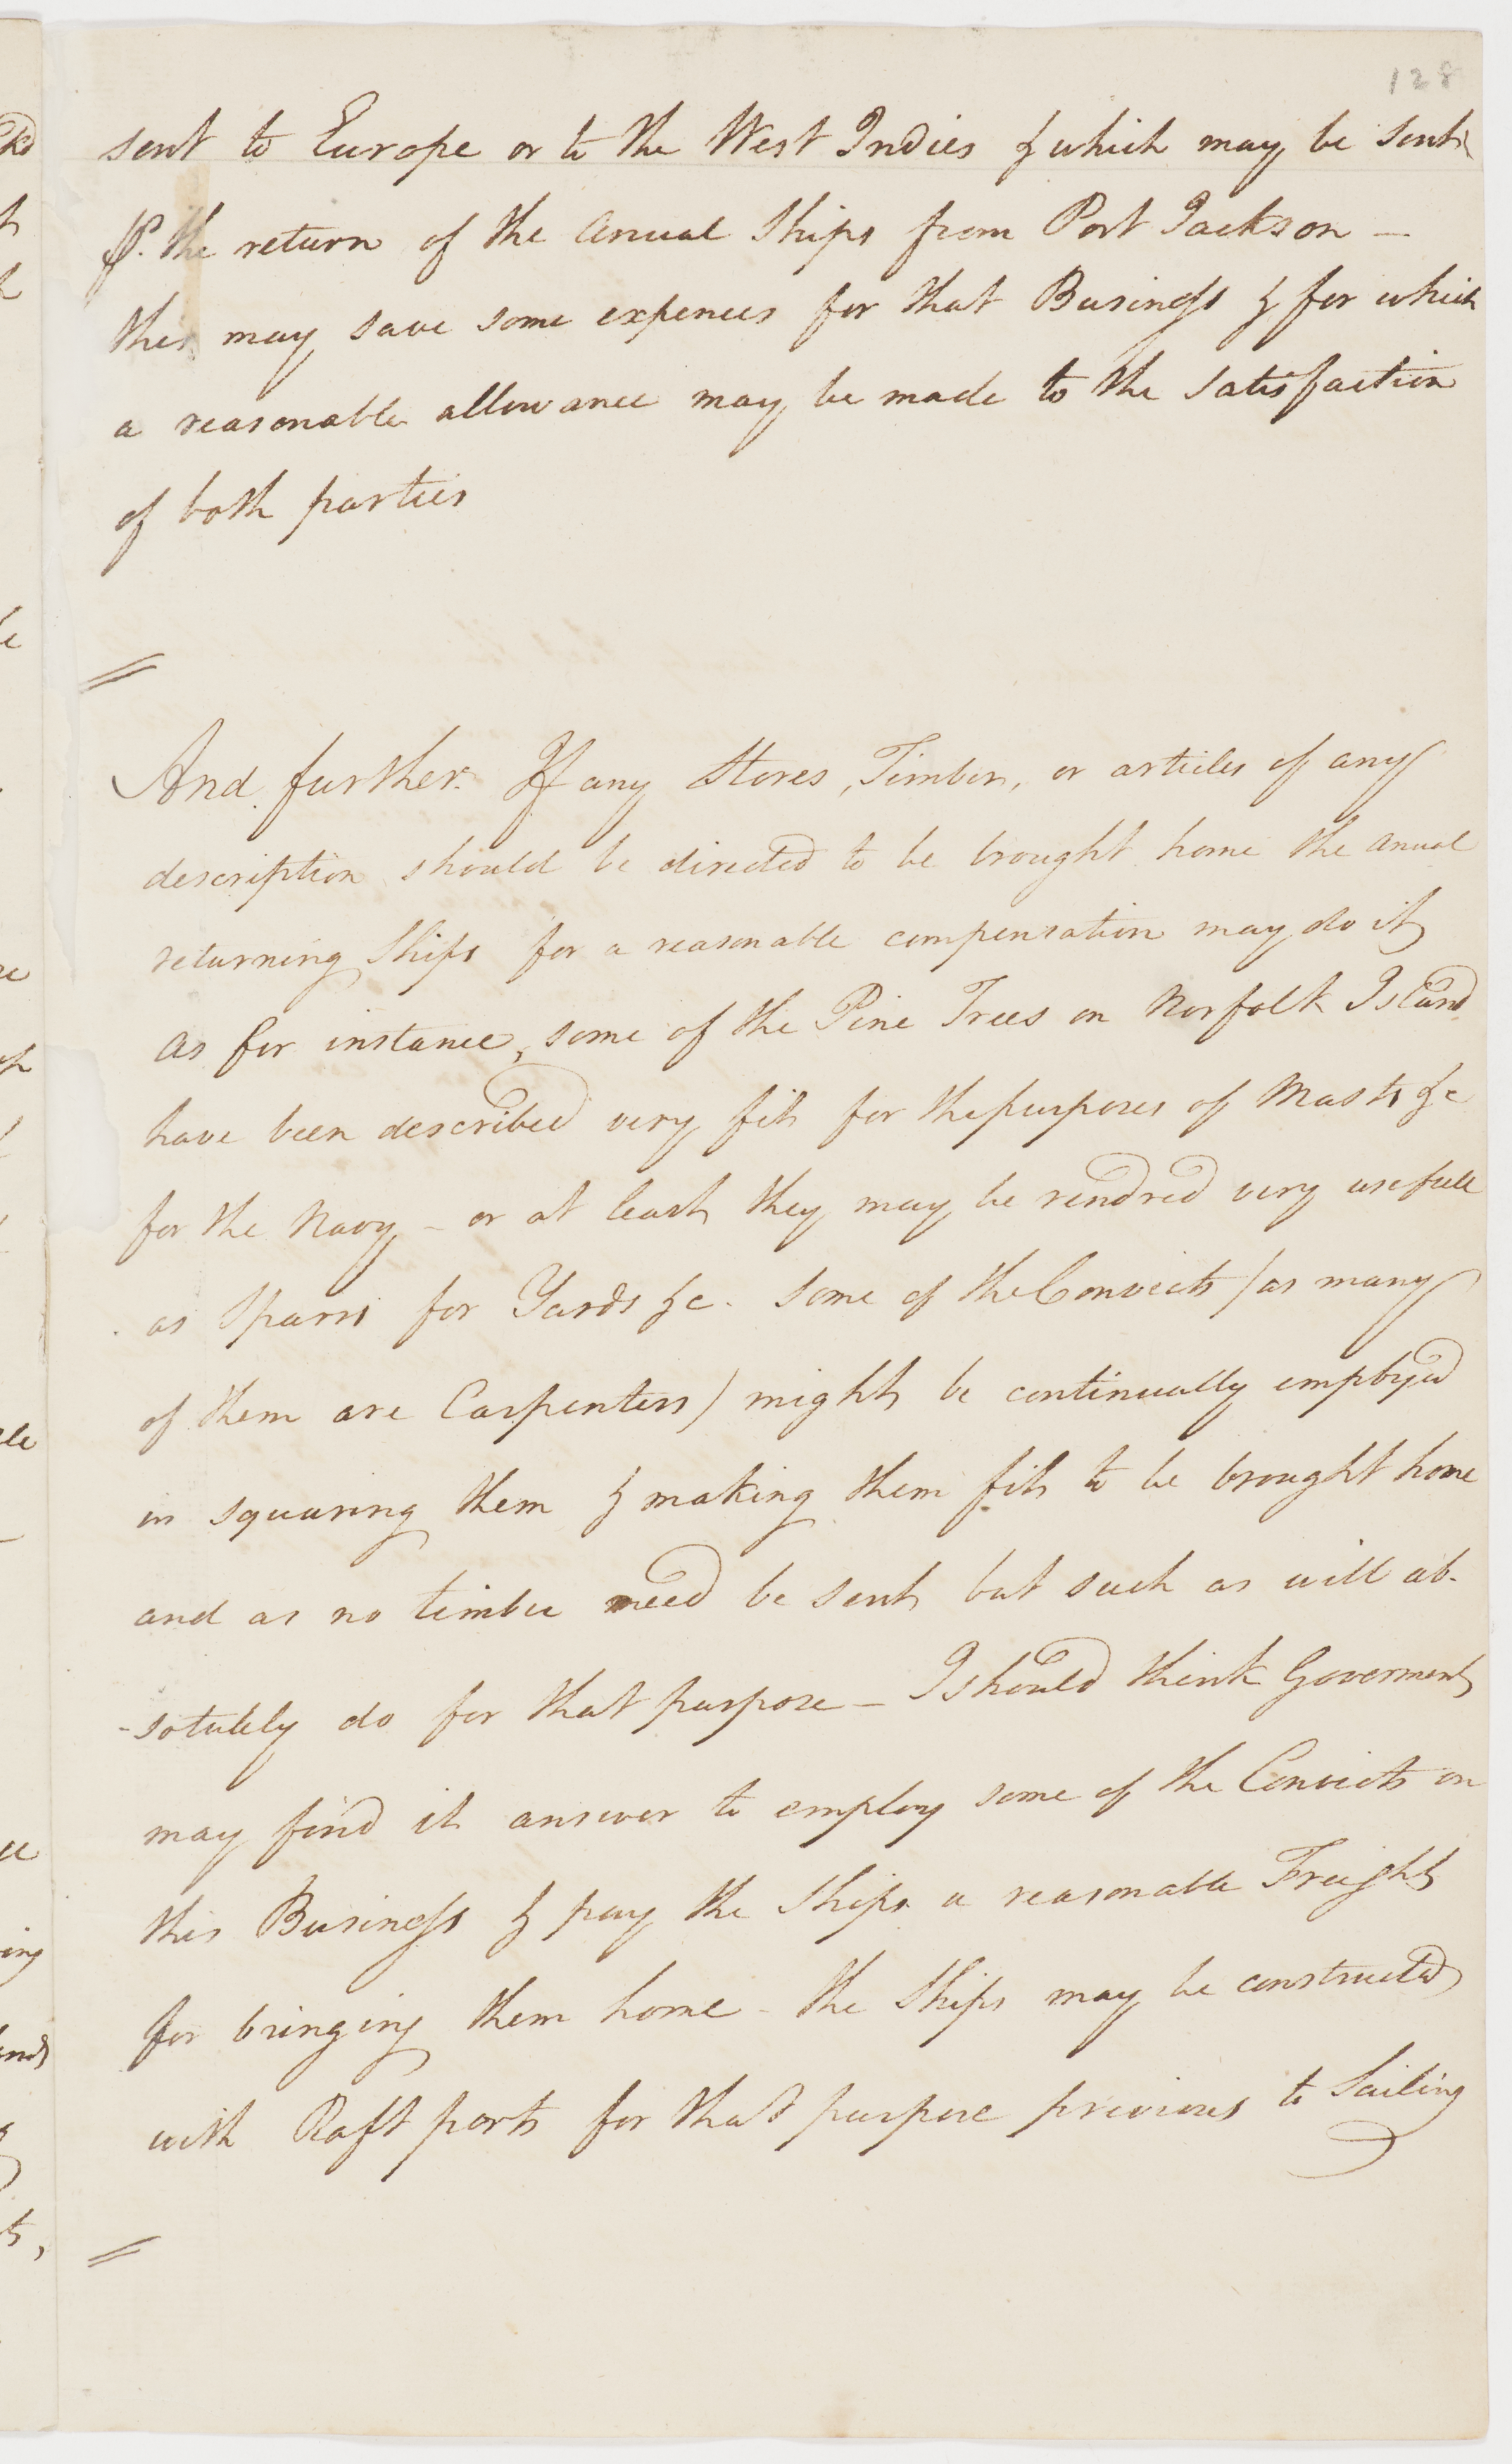 128
sent to Europe or to the West Indies & which may be sent
⅌. the return of the Anual Ships from Port Jackson —
this may save some expences for that Business & for which
a reasonable allowance may be made to the satisfaction
of both parties
And further. If any Stores, Timber, or articles of any
description should be directed to be brought home the anual
returning Ships for a reasonable compensation may do it
as for instance, some of the Pine Trees on Norfolk Island
have been described very fit for the purposes of Masts &c
for the Navy – or at least they may be rendred very usefull
as Sparrs for Yards &c. some of the Convicts / as many
of them are Carpenters / might be continually employed
in squaring them & making them fit to be brought home
and as no timber need be sent but such as will ab-
-solutely do for that purpose – I should think Goverment
may find it answer to employ some of the Convicts on
this Business & pay the Ships a reasonable Freight
for bringing them home – the Ships may be constructed
with Raft ports for that purpose previous to Sailing